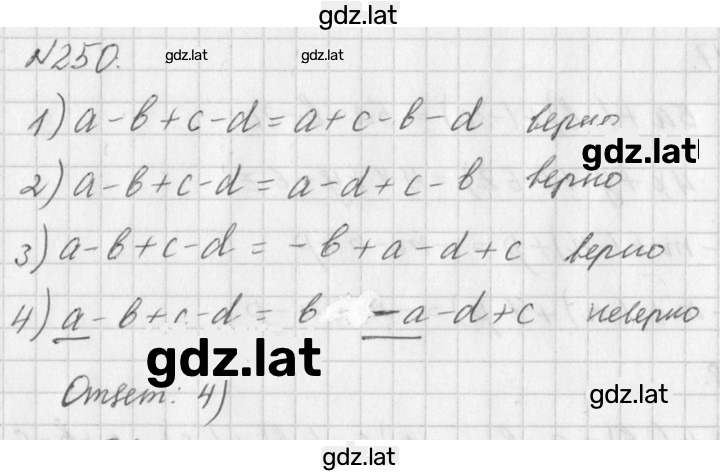 gdz.lat
№250. gdz.lat gdz.lat
1) a-b+c-d=a+c-b-d верно
gdz.lat
2) a-b+c-d=a-d+c-b верно
3) a-b+c-d=-b+a-d+c верно
4) a-b+c-d= b -a-d+c неверно
gdz.lat
Ответ: 4)
gdz.lat
gdz.lat